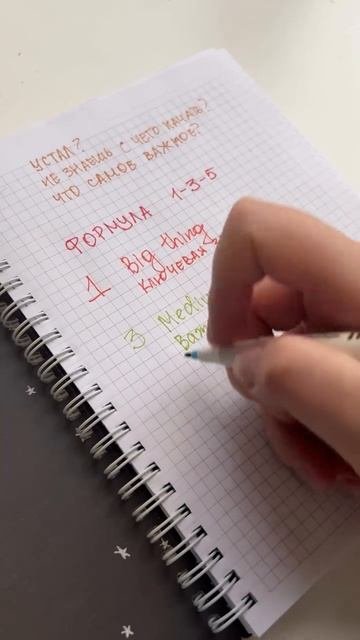 УСТАЛ?
НЕ ЗНАЕШЬ С ЧЕГО НАЧАТЬ?
ЧТО САМОЕ ВАЖНОЕ?
ФОРМУЛА 1-3-5
1 Big thing
КЛЮЧЕВАЯ
3